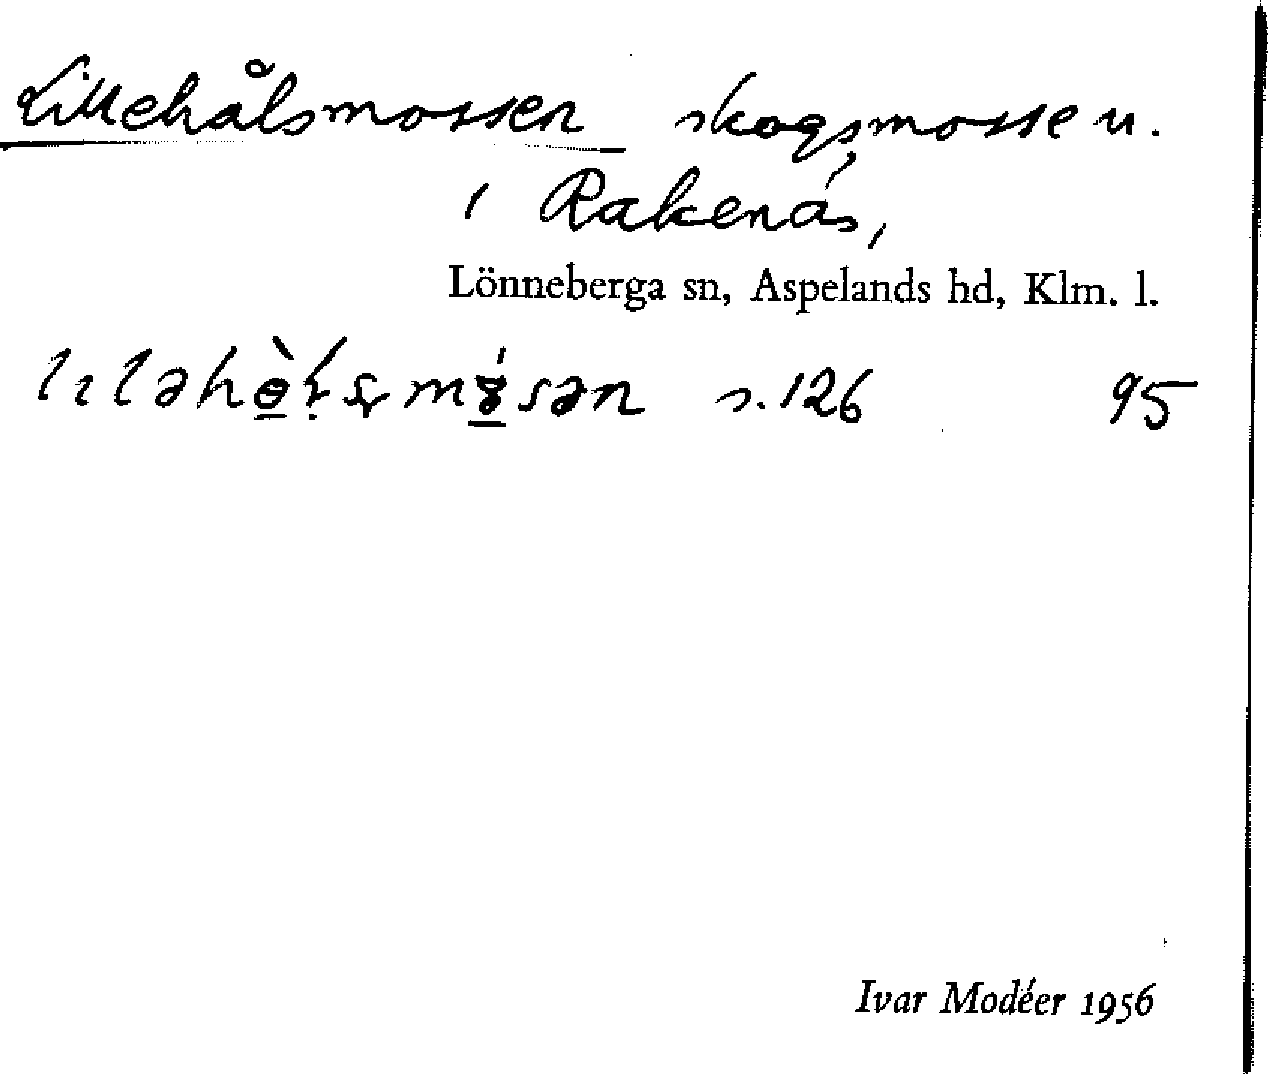 Lillehålsmossen skogsmosse n.
i Rakenäs,
Lönneberga sn, Aspelands hd, Klm. l.
s. 126 95
Ivar Modéer 1956